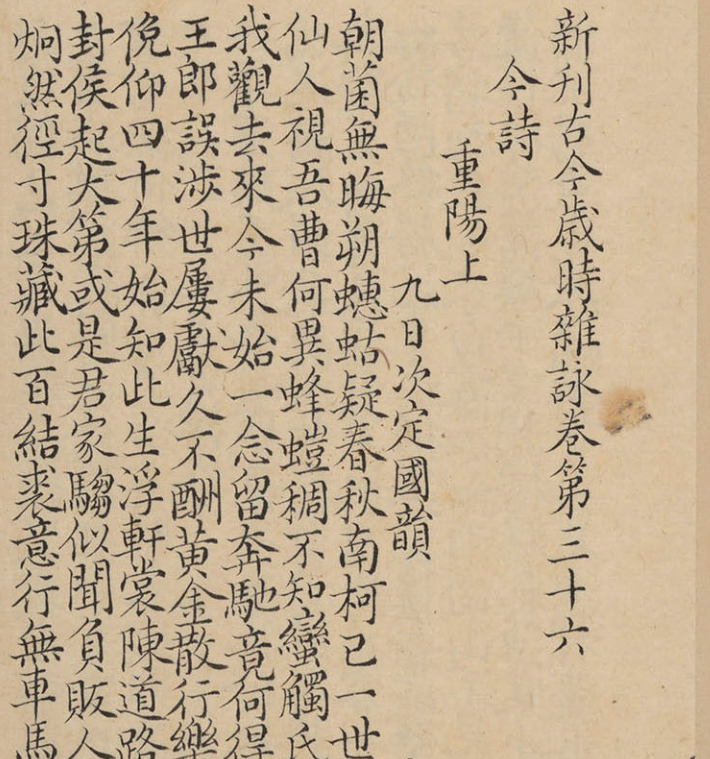 新刋古今歳時雜詠卷第三十六
今詩
重陽上
九日次定國韻
朝菌無晦朔蟪蛄疑春秋南柯已一世
仙人視吾曹何異蜂螘稠不知蠻觸氏
我觀去來今未始一念留奔馳竟何得
王郎誤涉世屢獻久不酬黃金散行樂
俛仰四十年始知此生浮軒裳陳道路
封侯起大第或是君家騶似聞負販人
炯然徑寸珠藏此百結裘意行無車馬